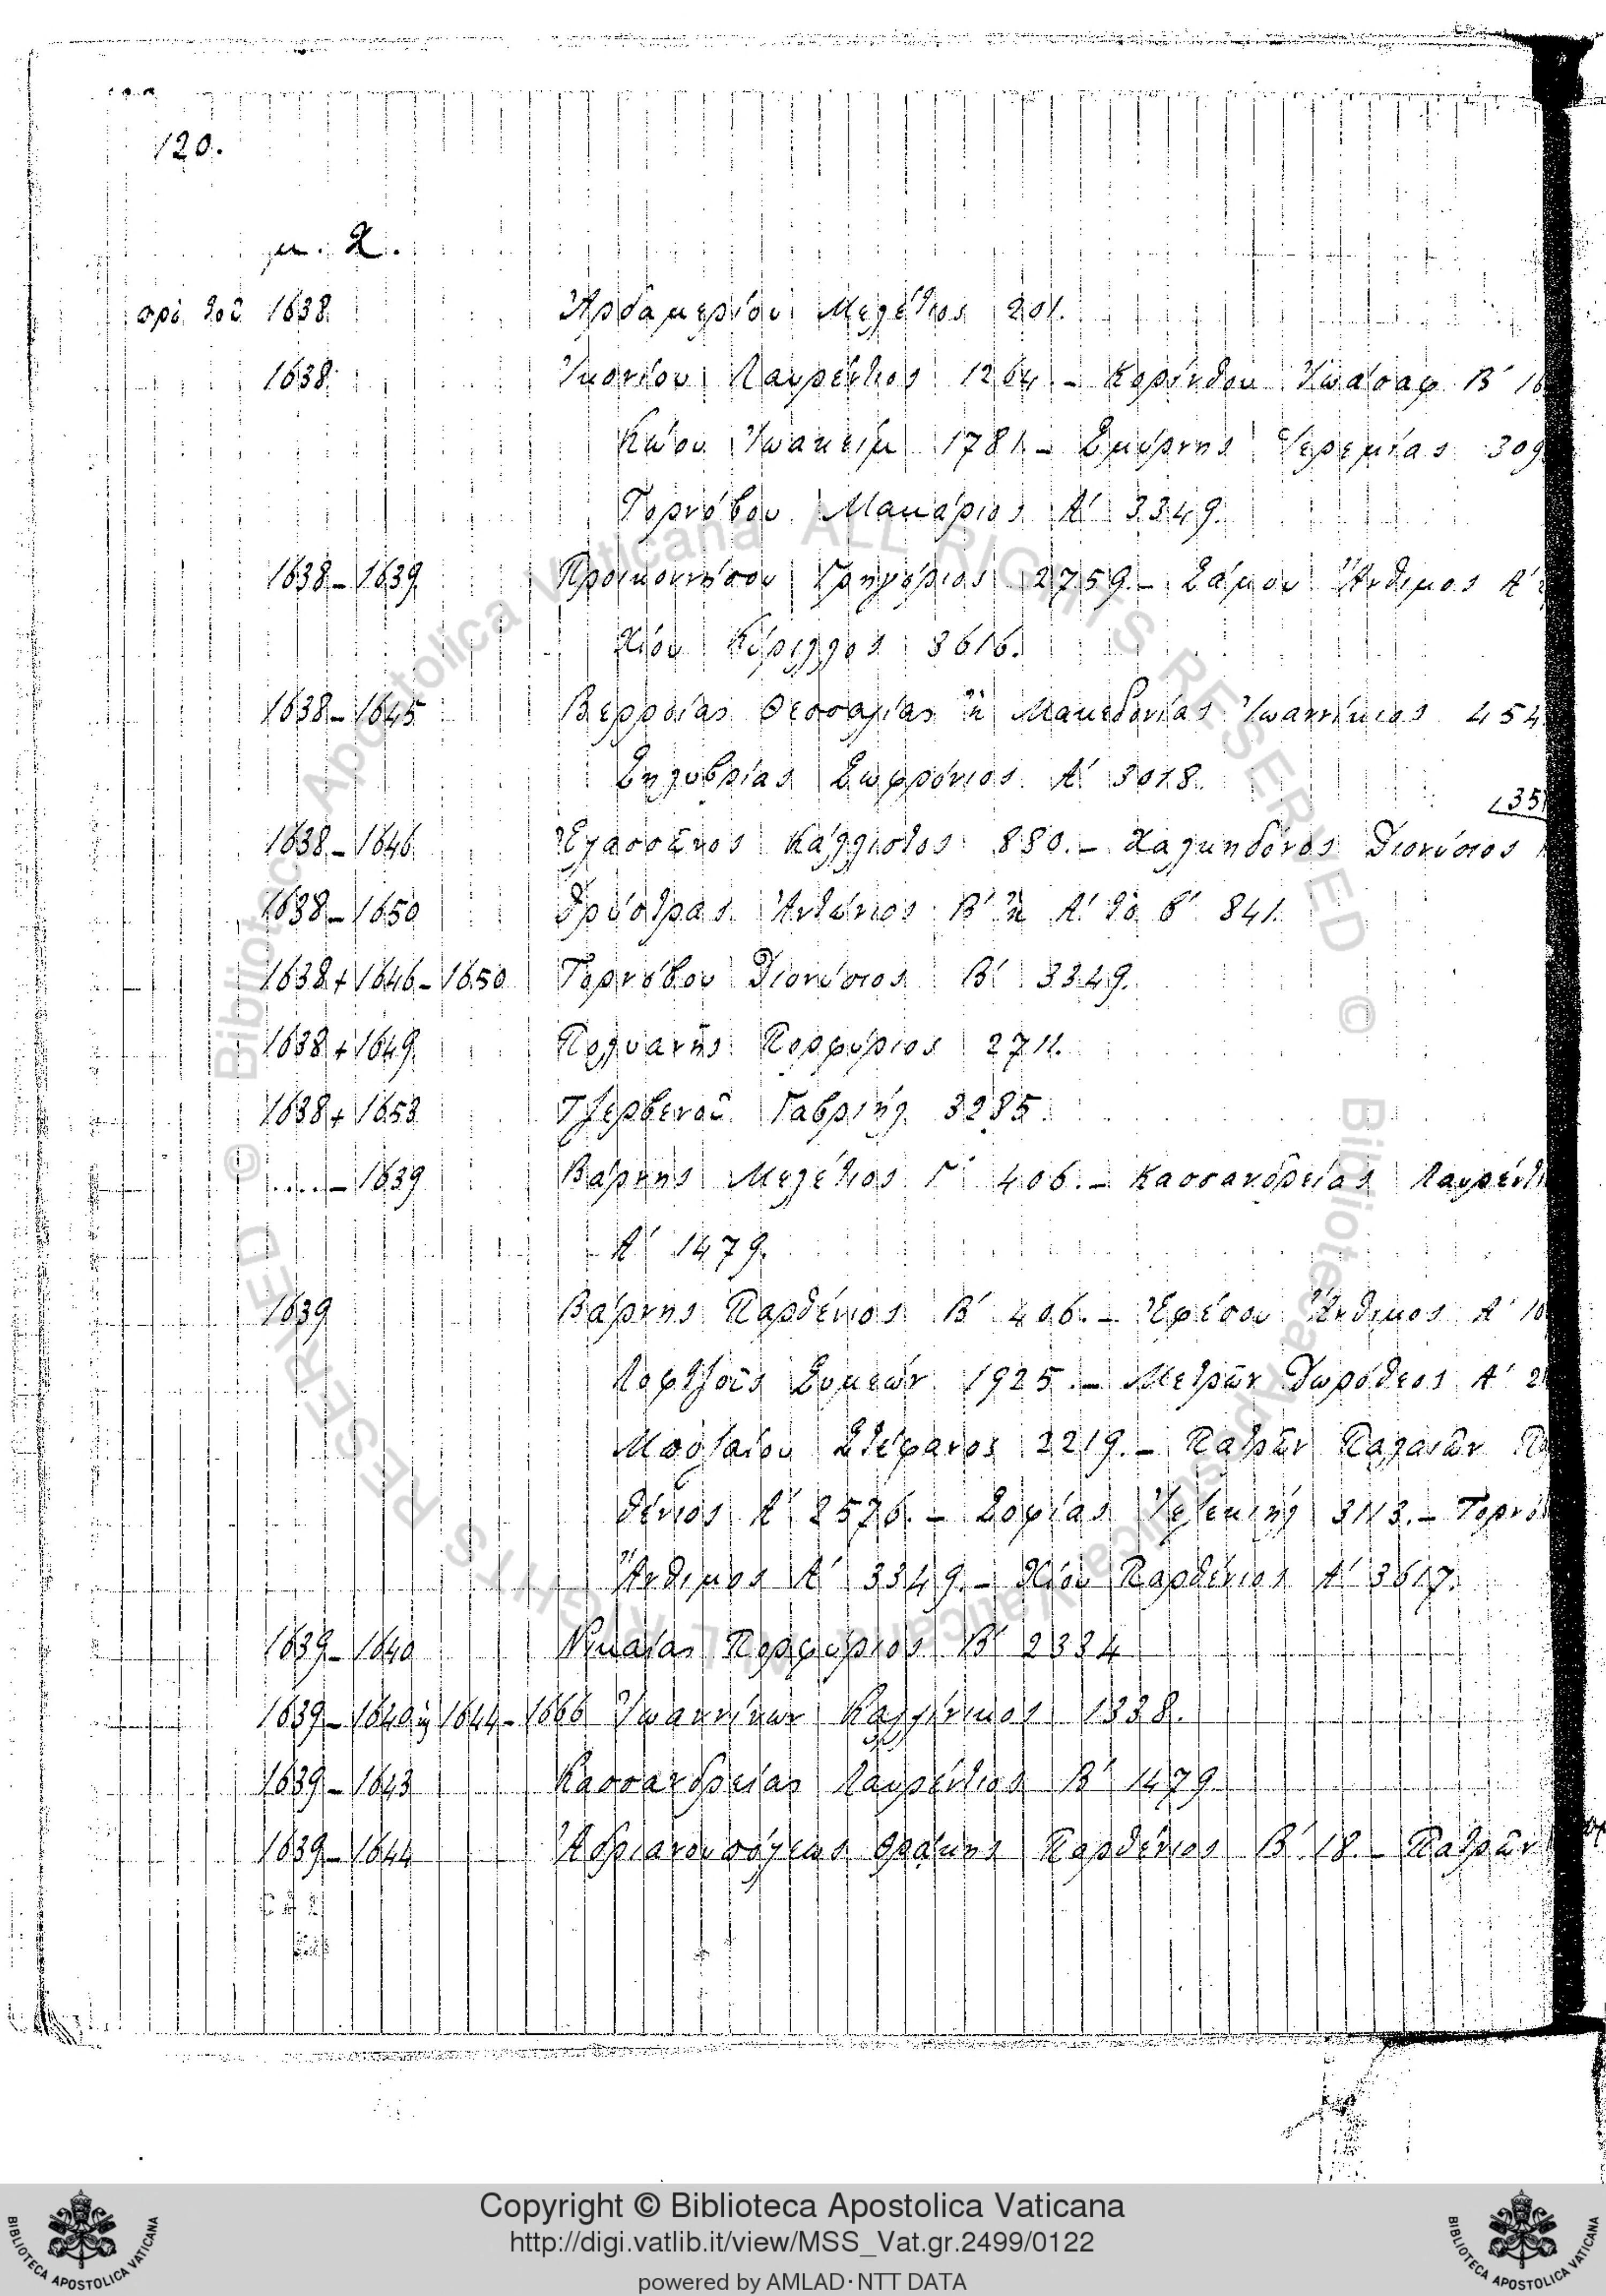 120.
μ. Χ.
πρὸ τοῦ 1638 Ἀρδαμερίου Μελέτιος 201.
1638 Ἰκονίου Λαυρέντιος 1264.- Κορίνθου Ἰωάσαφ Β΄
Κώου Ἰωακείμ 1781.- Σμύρνης Ἰερεμίας 309
Τορνόβου Μακάριος Α΄ 3349.
1638-1639 Προικοννήσου Γρηγόριος 2759.- Σάμου Ἄνθιμος Α΄
Χίου Κύριλλος 3616.
1638-1645 Βερροίας Θεσσαλίας ἢ Μακεδονίας Ἰωαννίκιος 454
Σηλυβρίας Σωφρόνιος Α΄ 3018.
1638-1646 Ἐλασσῶνος Κάλλιστος 880.- Χαλκηδόνος Διονύσιος
1638-1650 Δρύστρας Ἀντώνιος Β΄ ἢ Α΄ τὸ β΄ 841.
1638+1646-1650 Τορνόβου Διονύσιος Β΄ 3349.
1638+1649 Πολυανῆς Πορφύριος 2711.
1638+1653 Τζερβενοῦ Γαβριήλ 3285.
....-1639 Βάρνης Μελέτιος Γ΄ 406.- Κασσανδρείας
Α΄ 1479.
1639 Βάρνης Παρθένιος Β΄ 406.- Ἐφέσου Ἄνθιμος Α΄
Λοφτζοῦς Συμεών 1925.- Μετρῶν Δωρόθεος Α΄
Στέφανος 2219.- Πατρῶν Παλαιῶν
θένιος Α΄ 2576.- Σοφίας Ἰεζεκιήλ 3113.-
Ἄνθιμος Α΄ 3349.- Χίου Παρθένιος Α΄ 3617.
1639-1640 Νικαίας Πορφύριος Β΄ 2334
1639-1640 ἢ 1644-1666 Ἰωαννίνων Καλλίνικος 1338.
1639-1643 Κασσανδρείας Λαυρέντιος Β΄ 1479
1639-1644 Ἀδριανουπόλεως Θρᾴκης Παρθένιος Β΄ 18.- Πατρῶν
© Biblioteca Apostolica Vaticana ALL RIGHTS RESERVED
© Biblioteca Apostolica Vaticana ALL RIGHTS RESERVED
Copyright © Biblioteca Apostolica Vaticana
http://digi.vatlib.it/view/MSS_Vat.gr.2499/0122
powered by AMLAD·NTT DATA
BIBLIOTECA APOSTOLICA VATICANA
BIBLIOTECA APOSTOLICA VATICANA